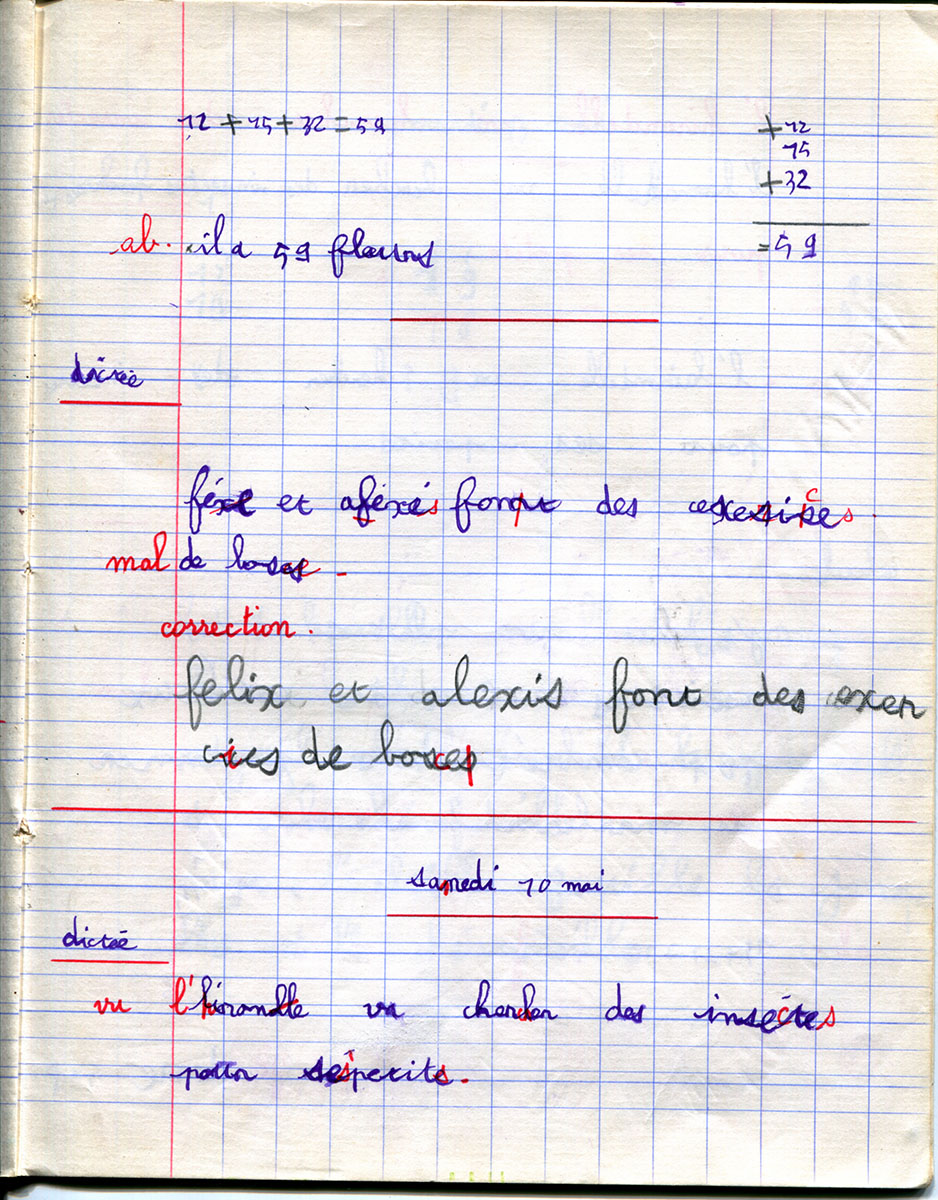 12 + 15 + 32 = 59
+ 12
15
+ 32
= 59
ab. il a 59 fleurs
dictée
et aféxés font des
mal de boxe.
correction.
felix et alexis font des exer
cices de boxes
samedi 10 mai
dictée
vu l'hirondelle va chercher des insectes
pour ses petits.